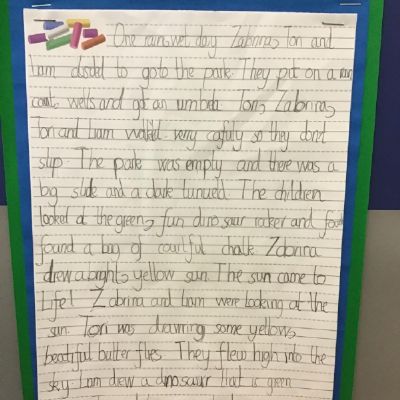 One rain, wet day Zabrina, Tori and
Liam disded to go to the park. They put on a rain
coat, wells and got an umbrela. Tori, Zabrina,
Tori and Liam walked very cafully so they donet
slip. The park was empty and there was a
big slide and a dark tunuel. The children
looked at the green, fun dino saur rocker and
found a bag of coulful chalk. Zabrina
drew a bright, yellow sun. The sun came to
Life! Zabrina and Liam were looking at the
sun. Tori was drawing some yellow,
beatiful butter flies. They flew high into the
sky. Liam drew a dinosaur that is green